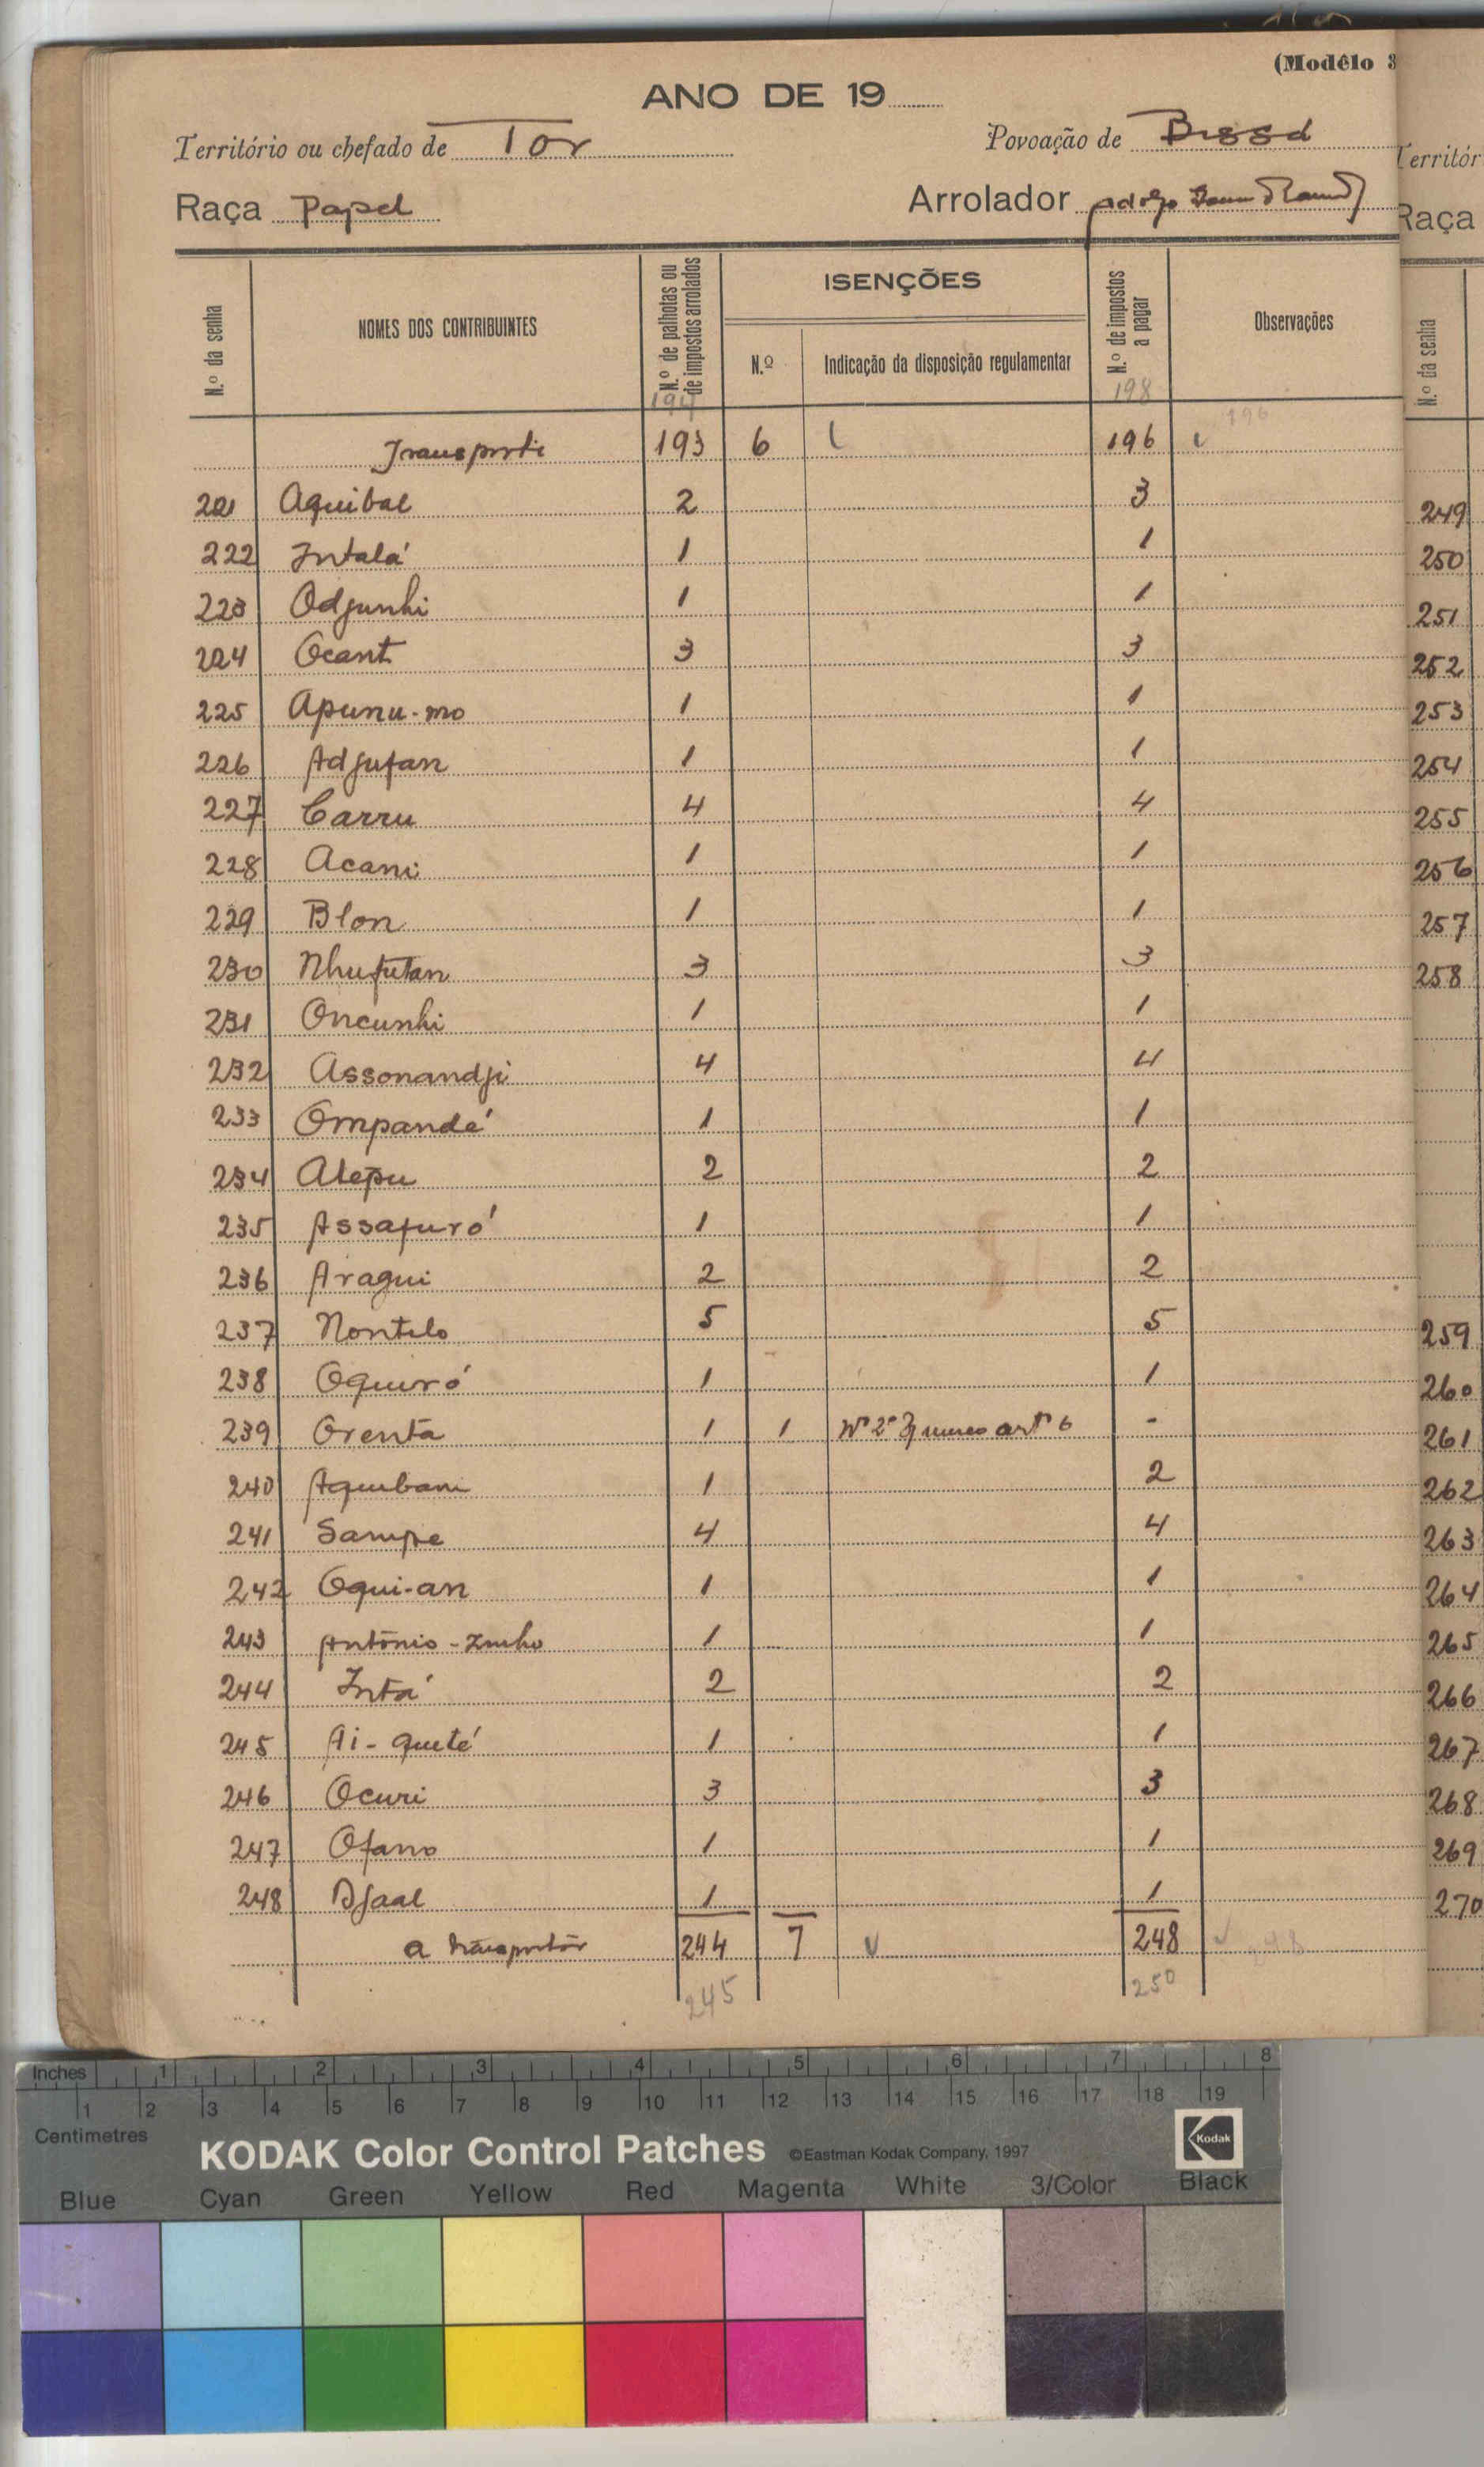 (Modêlo 3
ANO DE 19
Território ou chefado de Tor Povoação de Bissá
Raça Papel Arrolador Adolfo
N.º da senha NOMES DOS CONTRIBUINTES N.º de palhotas ou de impostos arrolados ISENÇÕES N.º Indicação da disposição regulamentar N.º de impostos a pagar Observações
194 198 196
Transporte 193 6 196
221 Aquibal 2 3
222 Intalá 1 1
223 Odjunhi 1 1
224 Ocant 3 3
225 Apunu-mo 1 1
226 Adjufan 1 1
227 Carru 4 4
228 Acani 1 1
229 Blon 1 1
230 Nhufutan 3 3
231 Oncunhi 1 1
232 Assonandji 4 4
233 Ompandé 1 1
234 Atepu 2 2
235 Assafuró 1 1
236 Aragui 2 2
237 Nontilo 5 5
238 Oquiró 1 1
239 Orenta 1 1 Nº 2º art º 6 -
240 Aquibani 1 2
241 Sampe 4 4
242 Oqui-an 1 1
243 António-Zinho 1 1
244 Intá 2 2
245 Ai-queté 1 1
246 Ocuri 3 3
247 Ofano 1 1
248 Djaal 1 1
a transportar 244 7 248
245 250
Territór
Raça
N.º da senha
249
250
251
252
253
254
255
256
257
258
259
260
261
262
263
264
265
266
267
268
269
270
Inches 1 2 3 4 5 6 7 8
1 2 3 4 5 6 7 8 9 10 11 12 13 14 15 16 17 18 19
Centimetres
KODAK Color Control Patches ©Eastman Kodak Company, 1997 Kodak
Blue Cyan Green Yellow Red Magenta White 3/Color Black